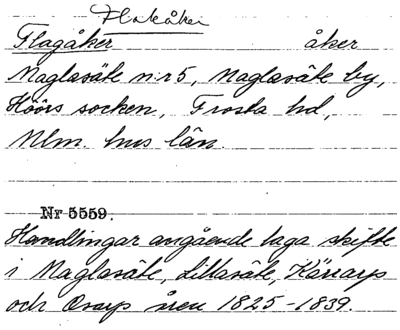 Flakåker
Flagåker åker
Maglasäte n:r 5, Maglasäte by,
Höörs socken, Frosta hd,
Mlm. hus län
Nr 5559.
Handlingar angående laga skifte
i Maglasäte, Lillasäte, Kärrarp
och Orarp åren 1825-1839.